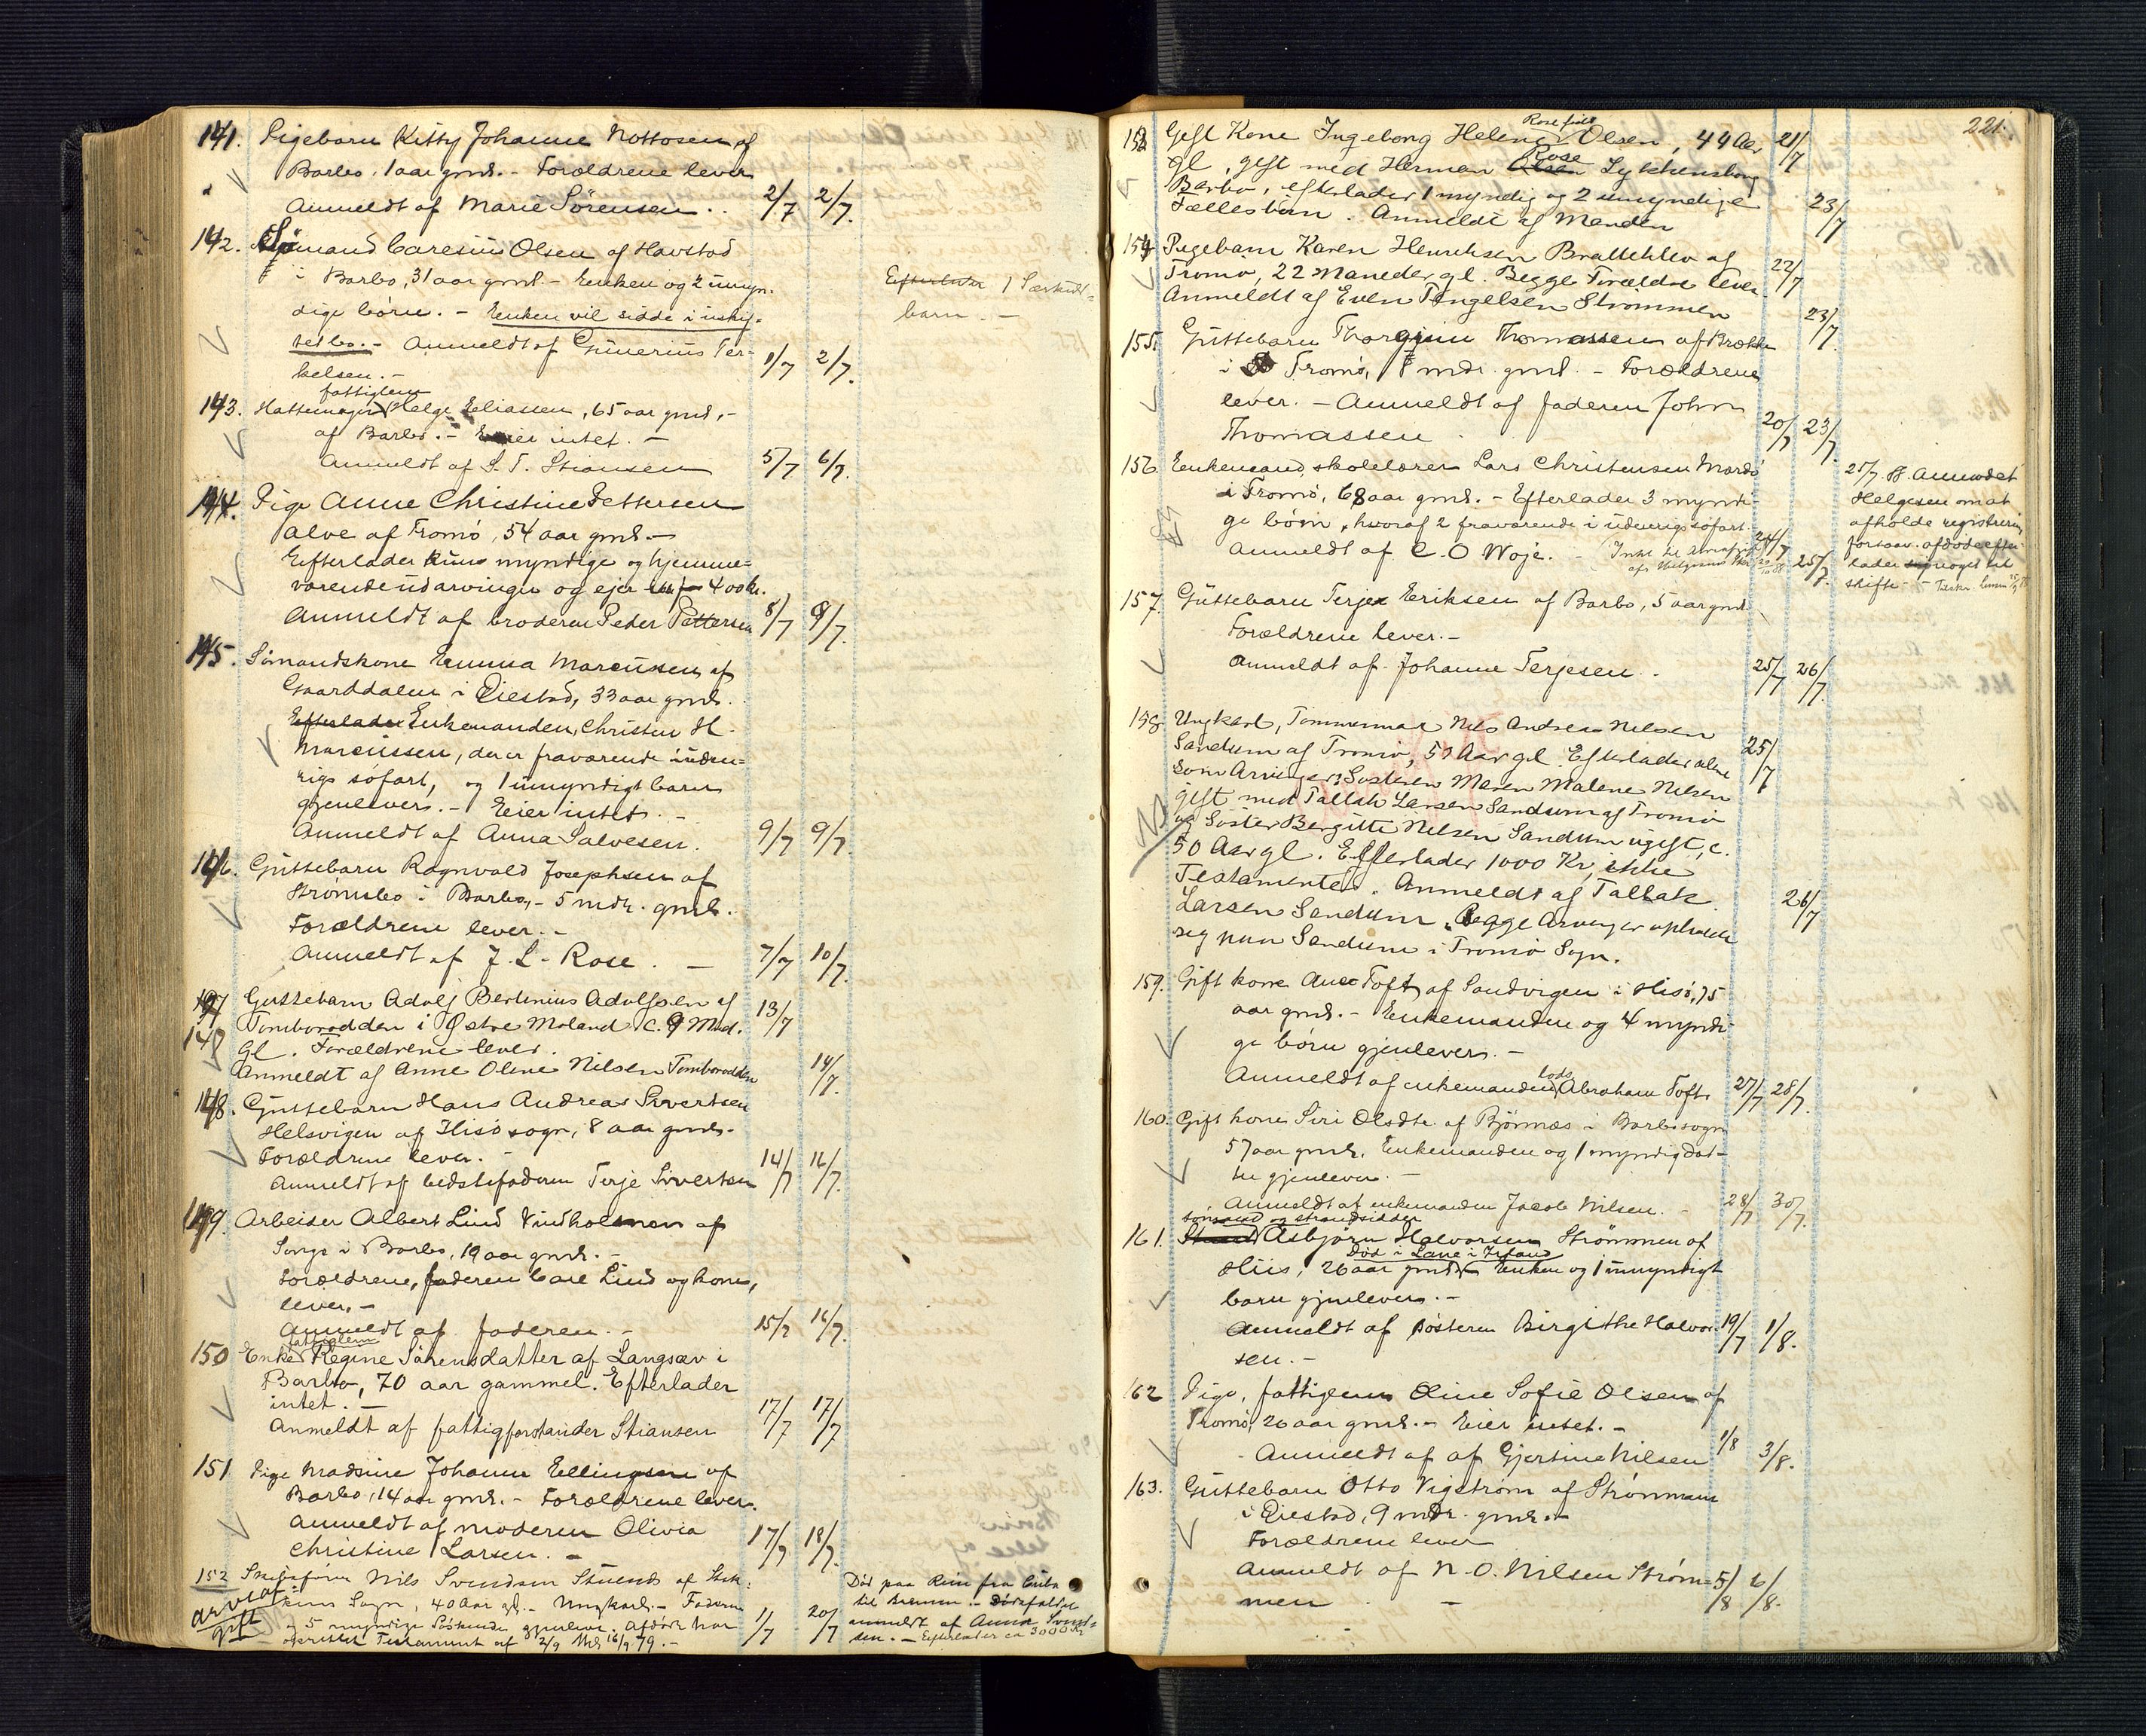 141. Pigebarn Kitty Johanne Nottosen af
Barbo. 1 aar gml. - Forældrene lever
Anmeldt af Marie Sörensen. . 2/7 2/7.
142. Sömand Caresius Olsen af Havstad
i Barbo, 31 aar gml. - Enken og 2 umyn-
dige börn. - Enken vil sidde i uskif-
tet bo. - Anmeldt af Gunerius Ter-
kelsen. - 1/7 2/7.
Efterlader 1 Særkuld-
barn. -
fattiglem
143. Hattemager Helge Eliassen, 65 aar gml, -
af Barbo. - Eier intet. -
Anmeldt af S. T. Stiansen 5/7 6/7.
144. Pige Anne Christine Pettersen
Alve af Tromö, 54 aar gml. -
Efterlader kuns myndige og hjemme-
værende udarvinger og ejer 400 kr.
Anmeldt af broderen Peder Pettersen 8/7 9/7.
145. Sömandskone Emma Marcussen af
Gaarddalen i Öiestad, 33 aar gml.
Efterlader Enkemanden, Christen H.
Marcussen, der er fraværende i uden-
rigs söfart, og 1 umyndigt barn
gjenlever. - Eier intet. -
Anmeldt af Anna Salvesen. 9/7 9/7.
146. Guttebarn Ragnvald Josephsen af
Strömsbo i Barbo, - 5 mdr. gml.
Forældrene lever. -
Anmeldt af J. L. Rose. - 7/7 10/7.
147 Guttebarn Adolf Bertinius Adolfsen af 13/7
Tomborodden i Østre Moland c. 9 Md.
gl. Forældrene lever.
Anmeldt af Anne Oline Nilsen Tomborodden 14/7.
148. Guttebarn Hans Andreas Sivertsen
Helsvigen af Hisö sogn, 8 aar gml. -
Forældrene lever. -
Anmeldt af bedstefaderen Terje Sivertsen 14/7 16/7.
149. Arbeider Albert Lind Vindholmen af
Songe i Barbo, 19 aar gml. -
Forældrene, faderen Carl Lind og kone,
lever. -
Anmeldt af faderen. - 15/7 16/7.
fattiglem
150 Enke Regine Sörensdatter af Langsæv i
Barbo, 70 aar gammel. Efterlader
intet. -
Anmeldt af fattigforstander Stiansen 17/7 17/7
151 Pige Madsine Johanne Ellingsen af
Barbo, 14 aar gml. - Forældrene lever.
Anmeldt af moderen Olivia
Christine Larsen. - 17/7 18/7.
152 Skibsförer Nils Svendsen af
Sogn, 40 Aar gl. - Ungkarl. - Faderen
og 5 myndige Söskende gjenlever. Afdöde har 1/7 20/7
oprettet Testament af 2/9 16/9. 79. -
Död paa Reise fra Cuba
til Bremen. - Dödsfaldet
anmeldt af Anna Svend-
sen. - Efterlader ca 3000 Kr
221.
Rose född
153 Gift Kone Ingeborg Helene Olsen, 44 Aar 21/7
gl, gift med Herman Olsen Rose Lykkensborg
Barbo, efterlader 1 myndig og 2 umyndige
Fællesbörn. Anmeldt af Manden 23/7
154 Pigebarn Karen Henriksen Bratteklev af
Tromö, 22 Maneder gl. Begge Forældre lever 22/7
Anmeldt af Even Tengelsen Strömmen 23/7.
155. Guttebarn Thorginn Thomassen af Brække
i Tromö, 8 mdr. gml. - Forældrene
lever. - Anmeldt af faderen John
Thomassen. 20/7 23/7.
156. Enkemand, skolelærer Lars Christensen Mardö
i Tromö, 68 aar gml. - Efterlader 3 myndi-
ge börn, hvoraf 2 fraværende i udenrigs söfart.
Anmeldt af C. O. Woje. - 24/7 25/7.
25/7 88. Anmodet
Helgesen om at
afholde registrering
forsaav. afdöde efter-
lader noget til
skifte. -
157. Guttebarn Terje Eriksen af Barbo, 5 aar gml
Forældrene lever. -
Anmeldt af Johanne Terjesen. 25/7 26/7.
158 Ungkarl, Tömmermand Nils Andreas Nilsen
Sandum af Tromö, 59 Aar gl. Efterlader alene 25/7
som Arvinger, Søsteren Maren Malene Nilsen
gift med Tallak Larsen Sandum af Tromö
og Söster Bergitte Nilsen Sandum ugift, c.
50 Aar gl. Efterlader 1000 Kr, ikke
Testamenteret. Anmeldt af Tallak
Larsen Sandum. Begge Arvinger opholder 26/7
sig paa Sandum i Tromö Sogn.
159. Gift kone Ane Toft af Sandvigen i Hisö, 75
aar gml. - Enkemanden og 4 myndi-
ge börn gjenlever. -
Anmeldt af enkemanden lods Abraham Toft. 27/7 28/7.
160. Gift kone Siri Olsdtr. af Björnæs i Barbo sogn
57 aar gml. Enkemanden og 1 myndig dat-
ter gjenlever. -
Anmeldt af enkemanden Jacob Nilsen. - 28/7 30/7.
sömand og strandsidder
161. Asbjörn Halvorsen Strömmen af
Död i Lane i Irland
Hiis, 26 aar gml. Enken og 1 umyndigt
barn gjenlever. -
Anmeldt af sösteren Birgithe Halvor- 19/7 1/8.
sen. -
162 Pige, fattiglem Oline Sofie Olsen af
Tromö, 26 aar gml. - Eier intet. -
Anmeldt af af Gjertine Nilsen 1/8 3/8.
163. Guttebarn Otto Vigström af Strömmen
i Öiestad, 9 mdr. gml. -
Forældrene lever
Anmeldt af N. O. Nilsen Ström- 5/8 6/8.
men -